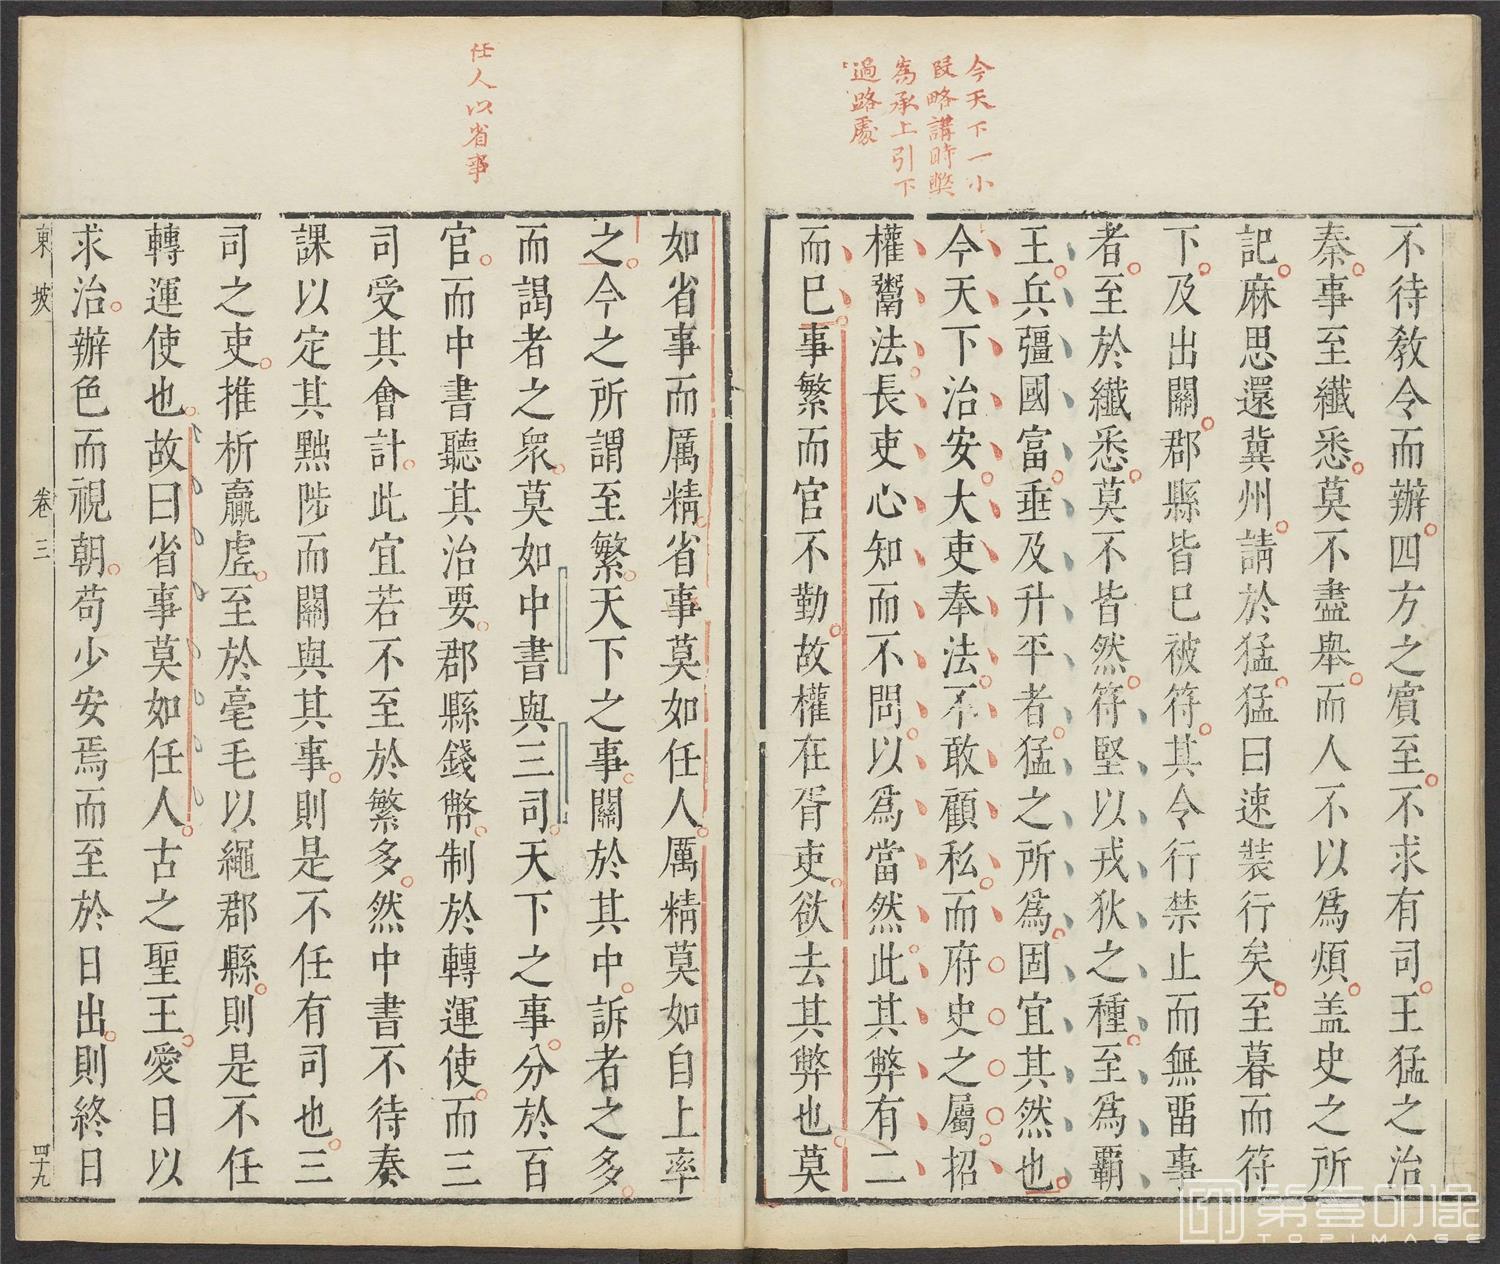 今天下一小
段略講時獘
為承上引下
過路處
不待敎令而辦四方之賓至不求有司王猛之治
秦事至纖悉莫不盡舉而人不以爲煩盖史之所
記麻思還冀州請於猛猛曰速裝行矣至暮而符
下及出關郡縣皆巳被符其令行禁止而無畱事
者至於纖悉莫不皆然符堅以戎狄之種至爲霸
王兵彊國富垂及升平者猛之所爲固宜其然也
今天下治安大吏奉法不敢顧私而府史之屬招
權鬻法長吏心知而不問以爲當然此其弊有二
而巳事繁而官不勤故權在胥吏欲去其弊也莫
任人以省事
如省事而厲精省事莫如任人厲精莫如自上率
之今之所謂至繁天下之事關於其中訴者之多
而謁者之衆莫如中書與三司天下之事分於百
官而中書聽其治要郡縣錢幣制於轉運使而三
司受其會計此宜若不至於繁多然中書不待奏
課以定其黜陟而關與其事則是不任有司也三
司之吏推析贏虛至於毫毛以繩郡縣則是不任
轉運使也故曰省事莫如任人古之聖王愛日以
求治辦色而視朝苟少安焉而至於日出則終日
東坡 卷三 四十九
第壹印像
TOPIMAGE